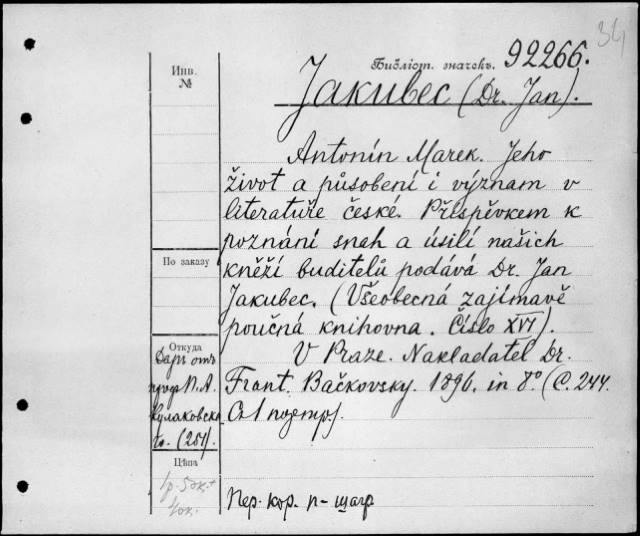 34
Библіот. значекъ. 92266.
Инв.
№
Jakubec (Dr. Jan).
Antonín Marek. Jeho
život a působení i význam v
literatuře české. Příspěvkem k
poznání snah a úsilí našich
kněží buditelů podává Dr. Jan
Jakubec. (Všeobecná zajímavě
poučná knihovna. Číslo XVI).
V Praze. Nakladatel Dr.
Frant. Bačkovsky. 1896. in 8º. (С. 244.
Съ 1 портр.).
По заказу
Откуда
Даръ отъ
проф. П. А.
Кулаковска
го. (251).
Цѣна
1р. 50к. +
40к.
Пер. кор. п-шагр